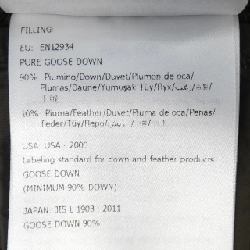 FILLING:
EU: EN12934
PURE GOOSE DOWN
90% Piumino/Down/Duvet/Plumon de oca/
Plumas/Daune/Yumuşak Tüy/Пух/
10% Piuma/Feather/Duvet/Pluma de oca/Penas/
Feder/Tüy/Перо/
USA: USA - 2000
Labeling standard for down and feather products
GOOSE DOWN
(MINIMUM 90% DOWN)
JAPAN: JIS L 1903 : 2011
GOOSE DOWN 90%